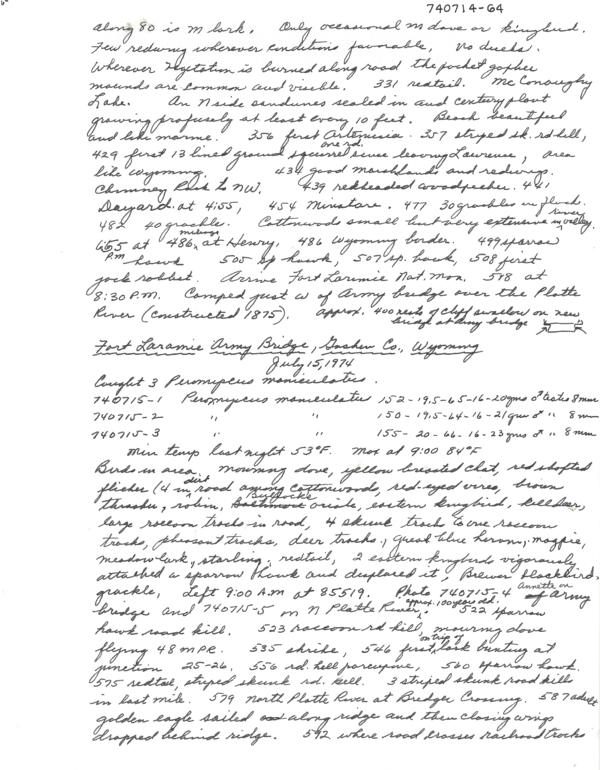 740714-64
along 80 is M lark. Only occasional m dove or kingbird.
Few redwing wherever conditions favorable, no ducks.
Wherever vegetation is burned along road the pocket gopher
mounds are common and visible. 331 redtail. McConaughy
Lake. On N side sandunes sealed in and century plant
growing profusely at least every 10 feet. Beach beautiful
and like marine. 356 first Artemesia. 357 striped sk. rd kill,
429 first 13 lined ground squirrel one rd. since leaving Lawrence, area
like Wyoming. 434 good marshlands and redwings.
Chimney Rock to NW. 439 redheaded woodpecker. 441
Bayard at 4:55, 454 Minatare. 477 30 grackles in flock.
482 40 grackle. Cottonwood small but very extensive in river valley.
6:55 P.M. at mileage 486, at Henry, 486 Wyoming border. 499 sparrow
hawk 505 sp hawk, 507 sp. hawk, 508 first
jack rabbit. Arrive Fort Laramie Nat. Mon. 518 at
8:30 P.M. Camped just W of Army bridge over the Platte
River (constructed 1875). Approx. 400 nests of cliff swallow on new
bridge at army bridge
Fort Laramie Army Bridge, Goshen Co., Wyoming
July 15, 1974
Caught 3 Peromyscus maniculatus.
740715-1 Peromyscus maniculatus 152-19.5-65-16-20gms ♂ testes 8mm
740715-2 " " 150-19.5-64-16-21gms ♂ " 8mm
740715-3 " " 155-20-66-16-23gms ♂ " 8mm
Min temp last night 53°F. Max at 9:00 84°F
Birds in area, mourning dove, yellow breasted chat, red shafted
flicker (4 in dirt road among cottonwoods, red-eyed vireo, brown
thrasher, robin, Bullocks oriole, eastern kingbird, killdeer,
large raccoon tracks in road, 4 skunk tracks to one raccoon
tracks, pheasant tracks, deer tracks, great blue heron, magpie,
meadowlark, starling, redtail, 2 eastern kingbirds vigorously
attacked a sparrow hawk and displaced it, Brewer blackbird,
grackle, Left 9:00 AM at 85519. Photo 740715-4 Annette on of Army
bridge and 740715-5 on N Platte River approx. 100 year old. 522 sparrow
hawk road kill. 523 raccoon rd kill, mourning dove
flying 48 MPR. 535 shrike, 546 first on trip of lark bunting at
junction 25-26. 556 rd. kill porcupine, 560 sparrow hawk.
575 redtail, striped skunk rd. kill. 3 striped skunk road kills
in last mile. 579 North Platte River at Bridger Crossing. 587 adult
golden eagle sailed along ridge and then closing wings
dropped behind ridge. 592 where road crosses railroad tracks